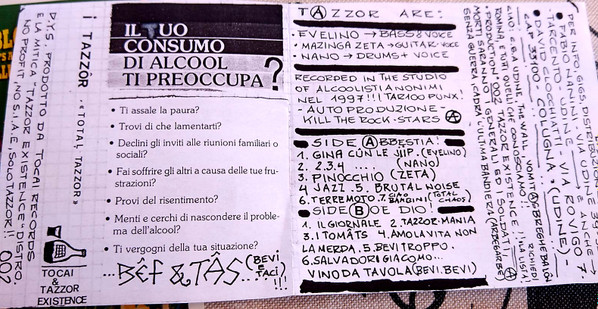 D.Y.S. PRODOTTO DA TOCAI RECORDS
E LA MITICA TAZZOR EXISTENCE DISTRO
NO PROFIT NO S.I.A.E. SOLO TAZZOR!!
002
¡ TAZZÒR
"TOTAL TAZZOR"
TOCAI
& TAZZOR
EXISTENCE
IL TUO
CONSUMO
DI ALCOOL
TI PREOCCUPA?
• Ti assale la paura?
• Trovi di che lamentarti?
• Declini gli inviti alle riunioni familiari o
sociali?
• Fai soffrire gli altri a causa delle tue fru-
strazioni?
• Provi del risentimento?
• Menti e cerchi di nascondere il proble-
ma dell'alcool?
• Ti vergogni della tua situazione?
...BÊF & TÂS...
(BEVI
E
TACI)!!!
TAZZOR ARE:
• EVELINO → BASS & VOCE
• MAZINGA ZETA → GUITAR/VOCE
• NANO → DRUMS + VOCE
RECORDED IN THE STUDIO
OF ALCOOLISTI ANONIMI
NEL 1997!!! TAR100 PUNX!
- AUTO PRODUZIONE -
KILL THE ROCK-STARS
SIDE ABBESTIA:
1. GINA CUN LE JIIP. (EVELINO)
2. 2.3.4 ... (NANO)
3. PINOCCHIO (ZETA)
4 JAZZ. 5. BRUTAL NOISE
6. TERREMOTO. 7. GAI BARGINI (TOTAL CHAOS)
SIDE BOE DIO!
1. IL GIORNALE 2. TAZZOR-MANIA
3. I TOMÀTS 4. AMO LA VITA NON
LA MERDA. 5. BEVI TROPPO.
6. SALVADORI GIACOMO...
VINO DA TAVOLA (BEVI. BEVI)
PER INFO, GIGS, DISTRIBUZION
• FABIO NANINO VIA UDINE
TARGENTO
• DAVID
CAP 33100 - COLUGNA (UDINE)
CIAO:
ROMINA, E TUTTI QUELLI CHE CONOSCIAMO!!!
PRODUTTION 002
MORTI SARANNO I GENERALI ED I SOLDATI
SENZA GUERRA, CADRÀ L'ULTIMA BANDIERA